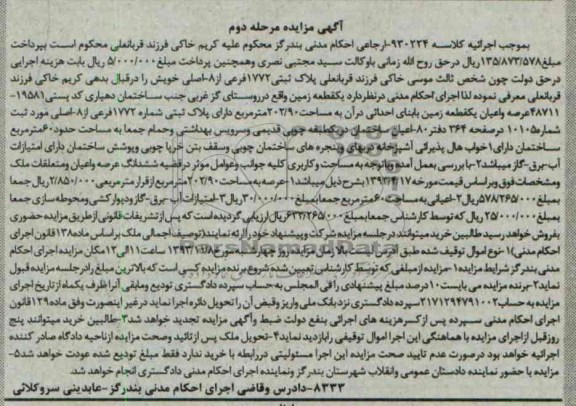 آگهی مزایده مرحله دوم
بموجب اجرائیه کلاسه ۹۳۰۲۲۴-ارجاعی احکام مدنی بندرگز محکوم علیه کریم خاکی فرزند قربانعلی محکوم است بپرداخت
مبلغ۱۳۵/۸۷۳/۵۷۸ریال درحق روح الله زمانی باوکالت سید مجتبی نصری وهمچنین پرداخت مبلغ۵/۰۰۰/۰۰۰ ریال بابت هزینه اجرایی
درحق دولت چون شخص ثالث موسی خاکی فرزند قربانعلی پلاک ثبتی۱۷۷۲فرعی از۸-اصلی خویش را درقبال بدهی کریم خاکی فرزند
قربانعلی معرفی نموده لذا اجرای احکام مدنی درنظردارد یکقطعه زمین واقع درروستای گز غربی جنب ساختمان دهیاری کد پستی۱۹۵۸۱-
۴۸۷۱۱عرصه واعیان یکقطعه زمین بابنای احداثی درآن به مساحت۲۰۲/۹۰مترمربع دارای پلاک ثبتی شماره ۱۷۷۲فرعی از۸-اصلی مورد ثبت
شماره۱۰۱۰۵ درصفحه ۳۶۴ دفتر۸۰-اعیان ساختمان در یکطبقه چوبی قدیمی وسرویس بهداشتی وحمام جمعا به مساحت حدود۶۰مترمربع
ساختمان دارای۱خواب هال پذیرائی آشپزخانه دربهای وپنجره های ساختمان چوبی وسقف بتن خرپا چوبی وپوشش ساختمان دارای امتیازات
آب-برق-گاز میباشد۲-با بررسی بعمل آمده وباتوجه به مساحت وکاربری کلیه جوانب وعوامل موثر درقضیه ششدانگ عرصه واعیان ومتعلقات ملک
ومشخصات فوق وبراساس قیمت مورخه ۱۳۹۳/۴/۱۷بشرح ذیل میباشد۱-عرصه به مساحت۲۰۲/۹۰مترمربع ازقرار مترمربعی۲/۸۵۰/۰۰۰ریال جمعا
بمبلغ۵۷۸/۲۶۵/۰۰۰ریال۲-اعیانی به مساحت۶۰مترمربع جمعابمبلغ۳۰/۰۰۰/۰۰۰ریال۳-امتیازات آب-برق-گاز ودیوارکشی ومحوطه سازی جمعا
بمبلغ۲۵/۰۰۰/۰۰۰ ریال که توسط کارشناس جمعابمبلغ۶۳۳/۲۶۵/۰۰۰ریال ارزیابی گردیده است که پس ازتشریفات قانونی ازطریق مزایده حضوری
بفروش خواهد رسید طالبین خرید میتوانند درجلسه مزایده شرکت وپیشنهاد خود را ارائه نمایند(توصیف اجمالی ملک براساس ماده۱۳۸قانون اجرای
احکام مدنی)۱-نوع اموال توقیف شده طبق آدرس لیست بالا زمان مزایده روز چهارشنبه مورخ۱۳۹۳/۱۰/۸ ساعت۱۱الی۱۲مکان مزایده اجرای احکام
مدنی بندرگز شرایط مزایده۱-مزایده ازمبلغی که توسط کارشناس تعیین شده شروع برنده مزایده کسی است که بالاترین مبلغ رادرجلسه مزایده قبول
نماید۲-برنده مزایده می بایست۱۰درصد مبلغ پیشنهادی راقی المجلس به حساب سپرده دادگستری تودیع ومابقی آنراظرف یکماه ازتاریخ اجرای
مزایده به حساب۲۱۷۱۲۹۴۷۹۱۰۰۲سپرده دادگستری نزد بانک ملی واریز وقبض آن را تحویل دائره اجرا نماید درغیر اینصورت وفق ماده۱۲۹قانون
اجرای احکام مدنی سپرده پس ازکسرهزینه های اجرائی بنفع دولت ضبط وآگهی مزایده تجدید خواهد شد۳-طالبین خرید میتوانند پنج
روزقبل ازاجرای مزایده با هماهنگی این اجرا اموال توقیفی رابازدید نماید۴-تحویل ملک پس ازتائید وصحت مزایده ازناحیه دادگاه صادر کننده
اجرائیه خواهد بود درصورت عدم تایید صحت مزایده این اجرا مسئولیتی دررابطه با خرید ندارد فقط مبلغ تودیع شده عودت خواهد شد۵-
مزایده با حضور نماینده دادستان عمومی وانقلاب شهرستان بندرگز ونماینده اجرای احکام مدنی دادگستری انجام خواهد شد.
۸۳۳۳-دادرس وقاضی اجرای احکام مدنی بندرگز-عابدینی سروکلائی